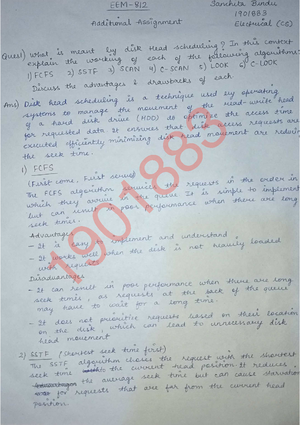 EEM-812
Sanchita Bindu
1901883
Additional Assignment
Electrical (CS)
Ques1) What is meant by disk Head scheduling? In this context
explain the working of each of the following algorithms:
1) FCFS 2) SSTF 3) SCAN 4) C-SCAN 5) LOOK 6) C-LOOK
Discuss the advantages & drawbacks of each
Ans) Disk head scheduling is a technique used by operating
systems to manage the movement of the read-write head
of a hard disk drive (HDD) to optimise the access time
for requested data. It ensures that disk access requests are
executed efficiently minimizing disk head movement are
the seek time.
1) FCFS
(First come, First serve)
The FCFS algorithm services the requests in the order in
which they arrive in the queue. It is simple to implement
but can result in poor performance when there are long
seek times.
Advantages
- It is easy to implement and understand
- It works well when the disk is not heavily loaded
with requests
Disadvantages
- It can result in poor performance when there are long
seek times, as requests at the back of the queue
may have to wait for a long time.
- It does not prioritise requests based on their location
on the disk, which can lead to unnecessary disk
head movement
2) SSTF (Shortest seek time first)
The SSTF algorithm choses the request with the shortest
seek time the current head position. It reduces
the average seek time but can cause starvation
for requests that are far from the current head
position.
1901883